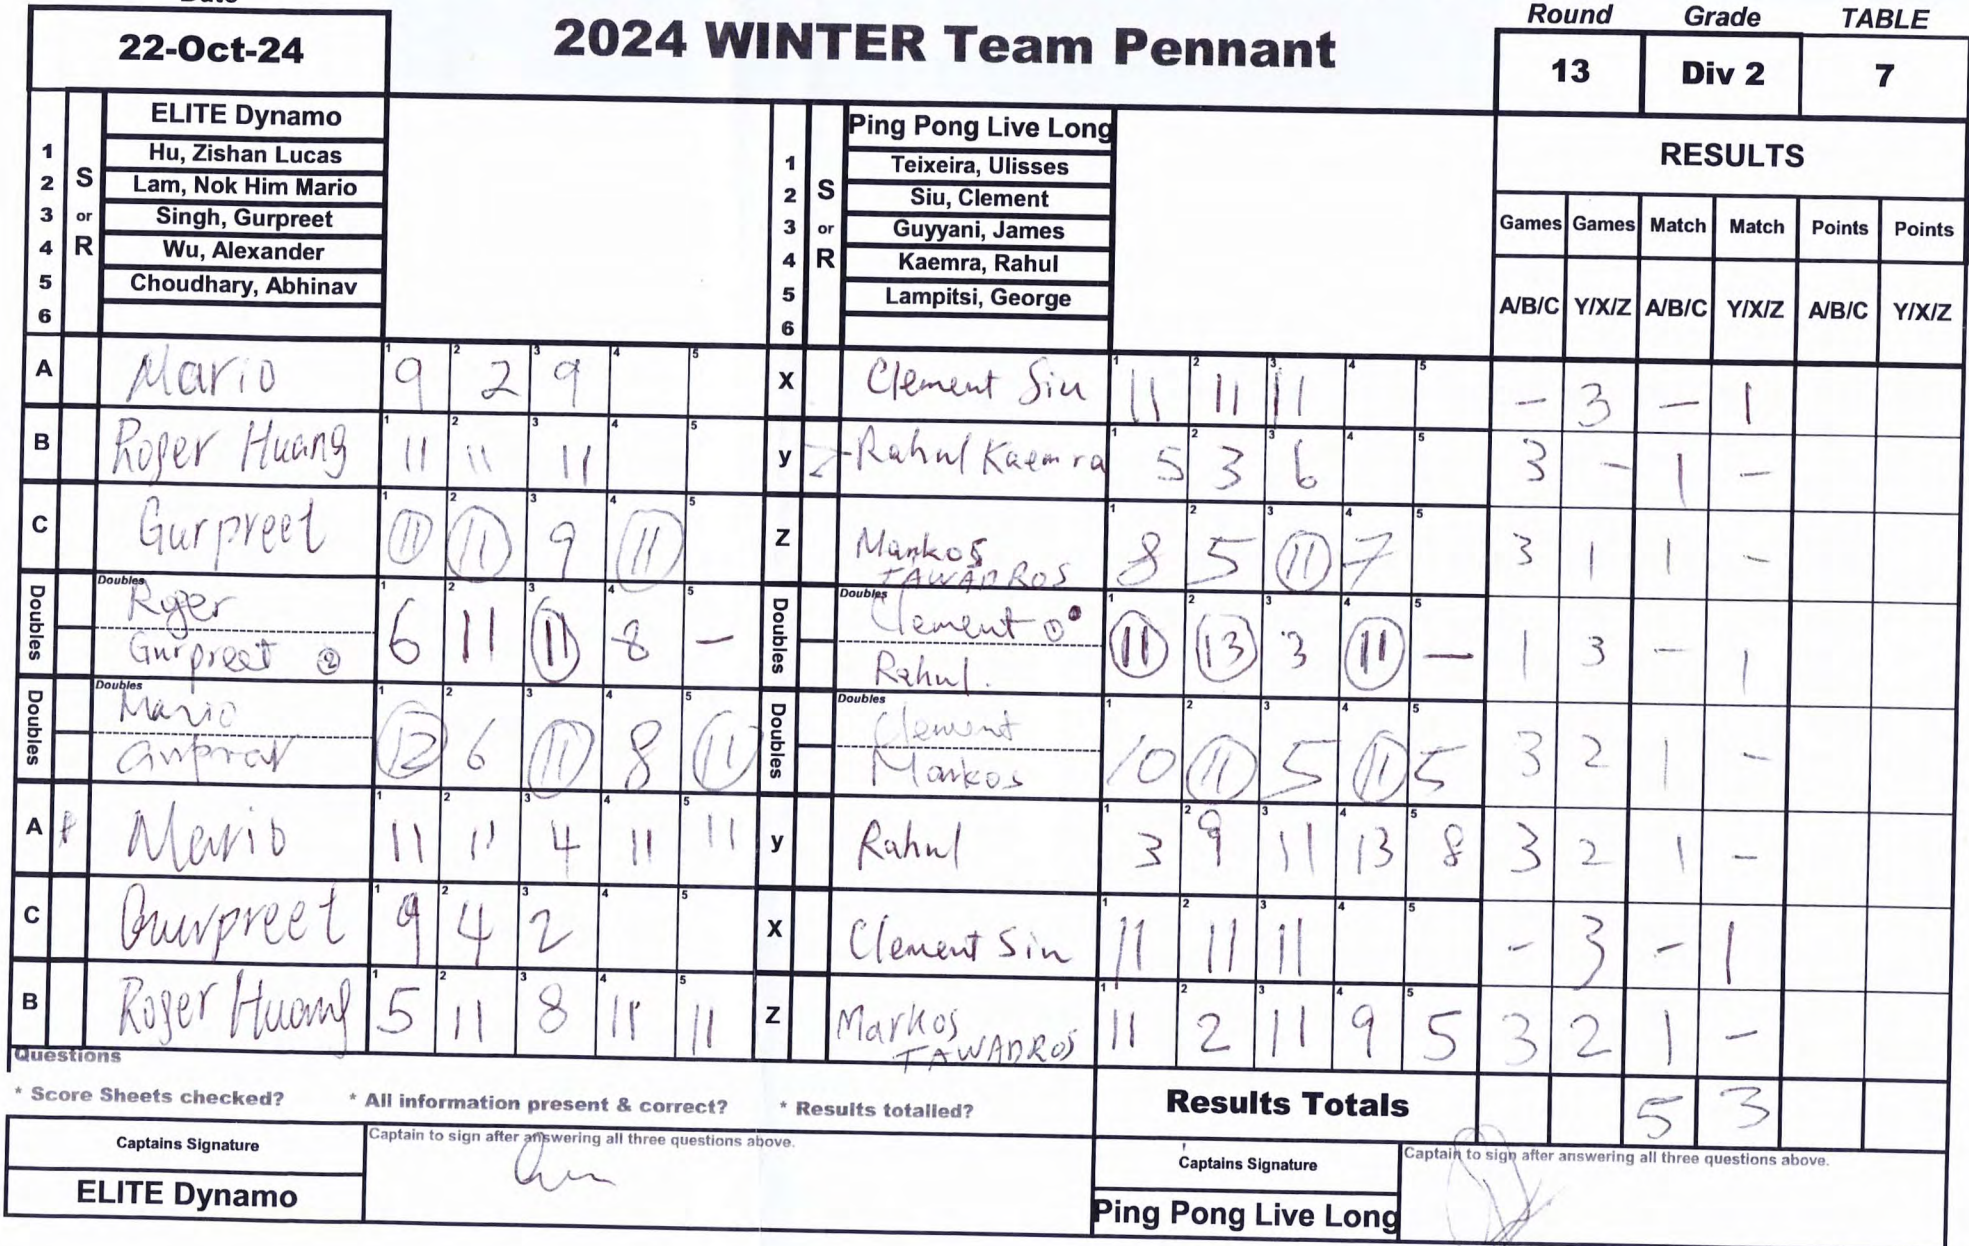 Date
22-Oct-24
2024 WINTER Team Pennant
Round Grade TABLE
13 Div 2 7
1 2 3 4 5 6
S or R
ELITE Dynamo
Hu, Zishan Lucas
Lam, Nok Him Mario
Singh, Gurpreet
Wu, Alexander
Choudhary, Abhinav
1 2 3 4 5 6
S or R
Ping Pong Live Long
Teixeira, Ulisses
Siu, Clement
Guyyani, James
Kaemra, Rahul
Lampitsi, George
RESULTS
Games Games Match Match Points Points
A/B/C Y/X/Z A/B/C Y/X/Z A/B/C Y/X/Z
A Mario 9 2 9 X Clement Siu 11 11 11 - 3 - 1
B Roger Huang 11 11 11 y Rahul Kaemra 5 3 6 3 - 1 -
C Gurpreet 11 11 9 11 Z Markos TAWADROS 8 5 11 7 3 1 1 -
Doubles Roger Gurpreet 2 6 11 11 8 - Doubles Clement 1 Rahul. 11 13 3 11 - 1 3 - 1
Doubles Mario Gurpreet 12 6 11 8 11 Doubles Clement Markos 10 11 5 11 5 3 2 1 -
A Mario 11 11 4 11 11 y Rahul 3 9 11 13 8 3 2 1 -
C Gurpreet 9 4 2 X Clement Siu 11 11 11 - 3 - 1
B Roger Huang 5 11 8 11 11 Z Markos TAWADROS 11 2 11 9 5 3 2 1 -
Questions
* Score Sheets checked? * All information present & correct? * Results totalled?
Results Totals 5 3
Captains Signature
Captain to sign after answering all three questions above.
ELITE Dynamo
Captains Signature
Captain to sign after answering all three questions above.
Ping Pong Live Long